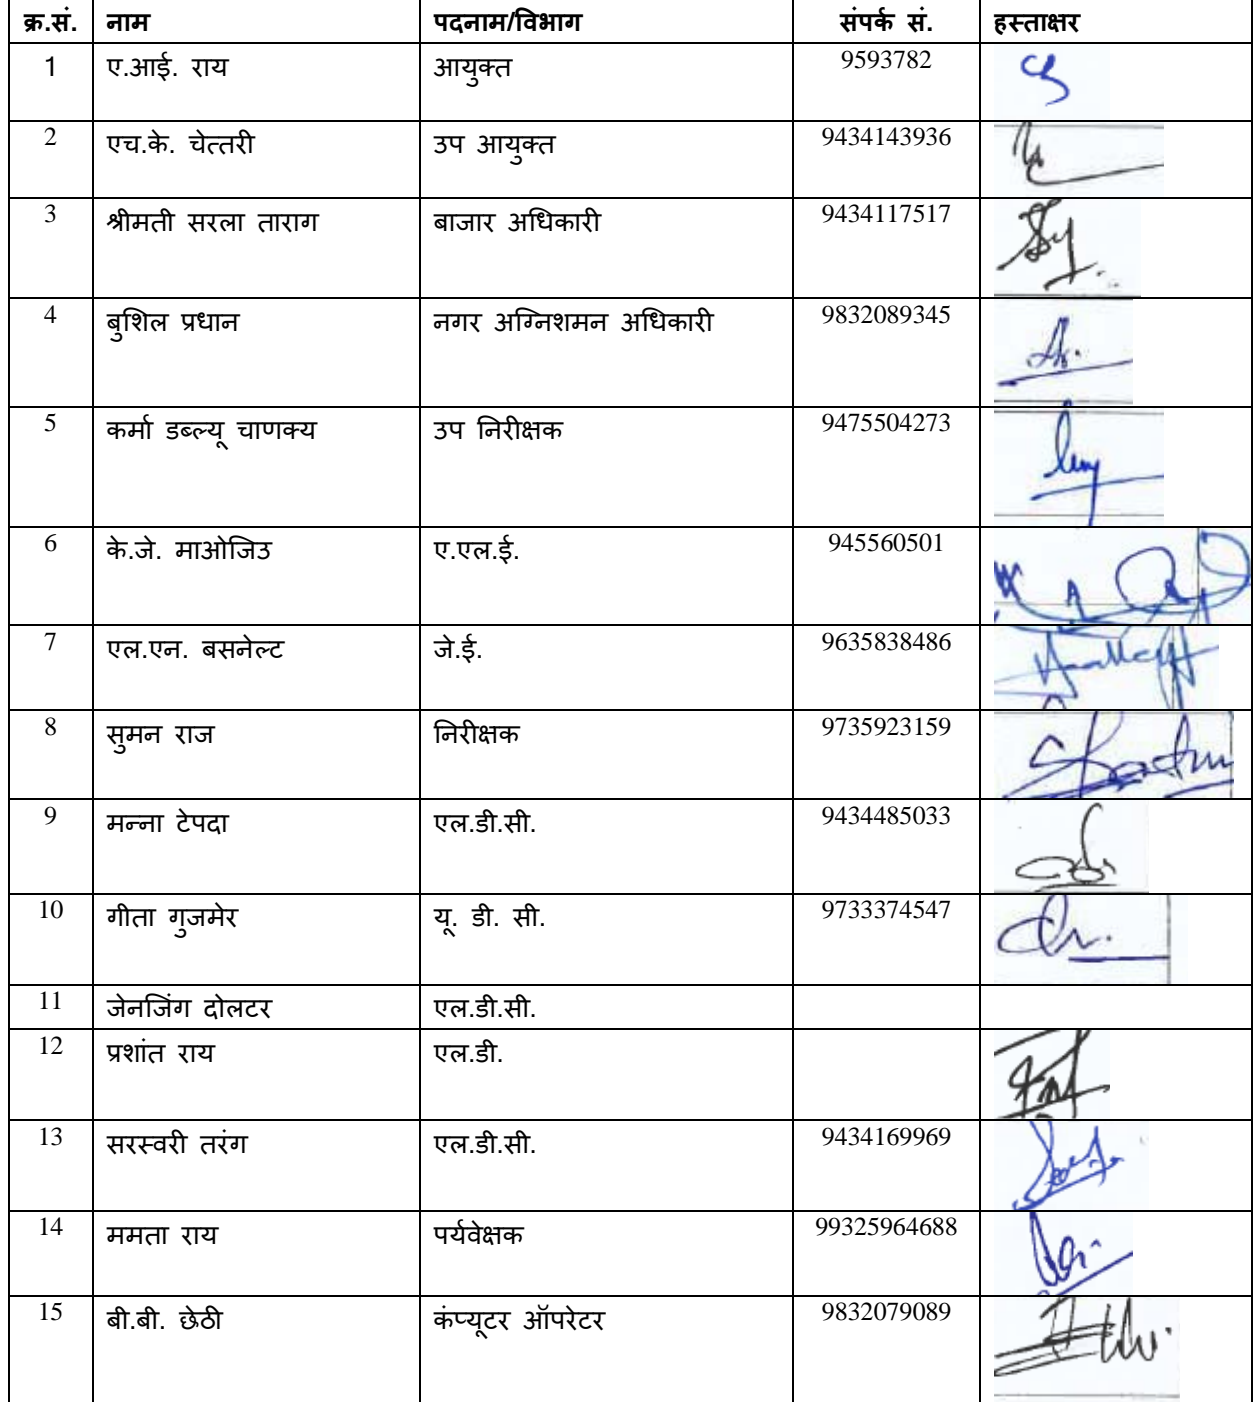 क्र.सं. नाम पदनाम/विभाग संपर्क सं. हस्ताक्षर
1 ए.आई. राय आयुक्त 9593782
2 एच.के. चेत्तरी उप आयुक्त 9434143936
3 श्रीमती सरला ताराग बाजार अधिकारी 9434117517
4 बुशिल प्रधान नगर अग्निशमन अधिकारी 9832089345
5 कर्मा डब्ल्यू चाणक्य उप निरीक्षक 9475504273
6 के.जे. माओजिउ ए.एल.ई. 945560501
7 एल.एन. बसनेल्ट जे.ई. 9635838486
8 सुमन राज निरीक्षक 9735923159
9 मन्ना टेपदा एल.डी.सी. 9434485033
10 गीता गुजमेर यू. डी. सी. 9733374547
11 जेनजिंग दोलटर एल.डी.सी.
12 प्रशांत राय एल.डी.
13 सरस्वरी तरंग एल.डी.सी. 9434169969
14 ममता राय पर्यवेक्षक 99325964688
15 बी.बी. छेठी कंप्यूटर ऑपरेटर 9832079089